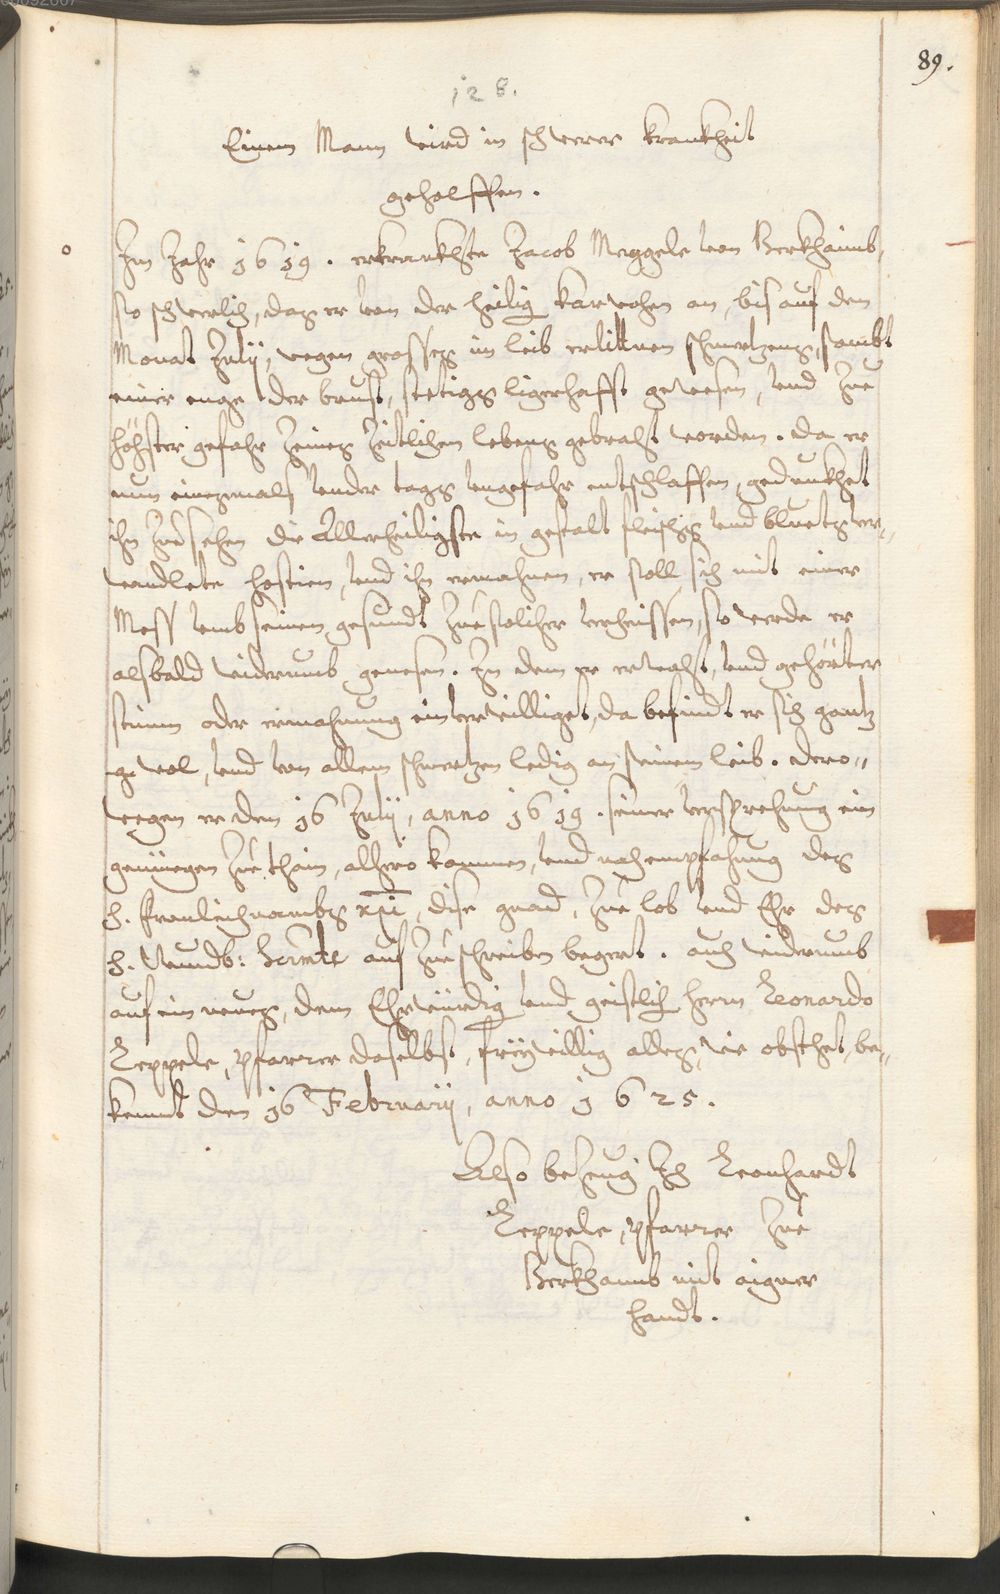 89.
128.
Einem Mann wird in schwerer kranckheit
geholffen.
Im Jahr 1619. erkranckhte Jacob Meggele von Berkhaimb,
so schwerlich, das er von der heilig karwochen an, bis auf den
Monat Julij, wegen grosses im leib erlittnen schmertzens, sambt
einer enge der brust, stetigs ligerhafft gewesen, vnd zue
höchster gefahr seines zeitlichen lebens gebracht worden. da er
nun einesmals vnder tags vngefahr entschlaffen, gedunckhet
ihn zue sehen die Allerheiligste in gestalt fleischs vnd bluets ver-
wandlete hostien, vnd ihn ermahnen, er soll sich mit einer
Mess vmb seinen gesundt zue solicher verheissen, so werde er
alsbald widerumb genesen. In dem er erwacht, vnd gehörter
stimm oder ermahnung einverwilliget, da befindt er sich gantz
wol, vnd von allem schmertzen ledig an seinem leib. dero-
wegen er den 16 Julij, anno 1619. seiner versprechung ein
genüegen zue thain, alhero kommen, vnd nach empfahung des
h. fronleichnambs xpi, dise gnad, zue lob vnd Ehr des
h. Wundb: Sacrmts auf zue schreiben begert. auch widerumb
auf ein neues, dem Ehrwürdig vnd geistlich herrn Leonardo
Zeppele, pfarrer daselbst, freywillig alles, wie obsthet, be-
kennt den 16 Februarij, anno 1625.
Also bezeug Ich Leonhardt
Zeppele, pfarrer zue
Berkhaimb mit aigner
handt.